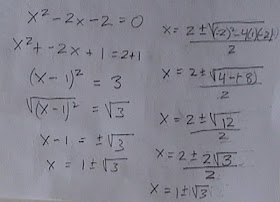 x² - 2x - 2 = 0
x² + -2x + 1 = 2+1
(x - 1)² = 3
√(x - 1)² = √3
x - 1 = ±√3
x = 1 ± √3
x = 2 ± √(-2)² - 4(1)(-2) / 2
x = 2 ± √4-(-8) / 2
x = 2 ± √12 / 2
x = 2 ± 2√3 / 2
x = 1 ± √3